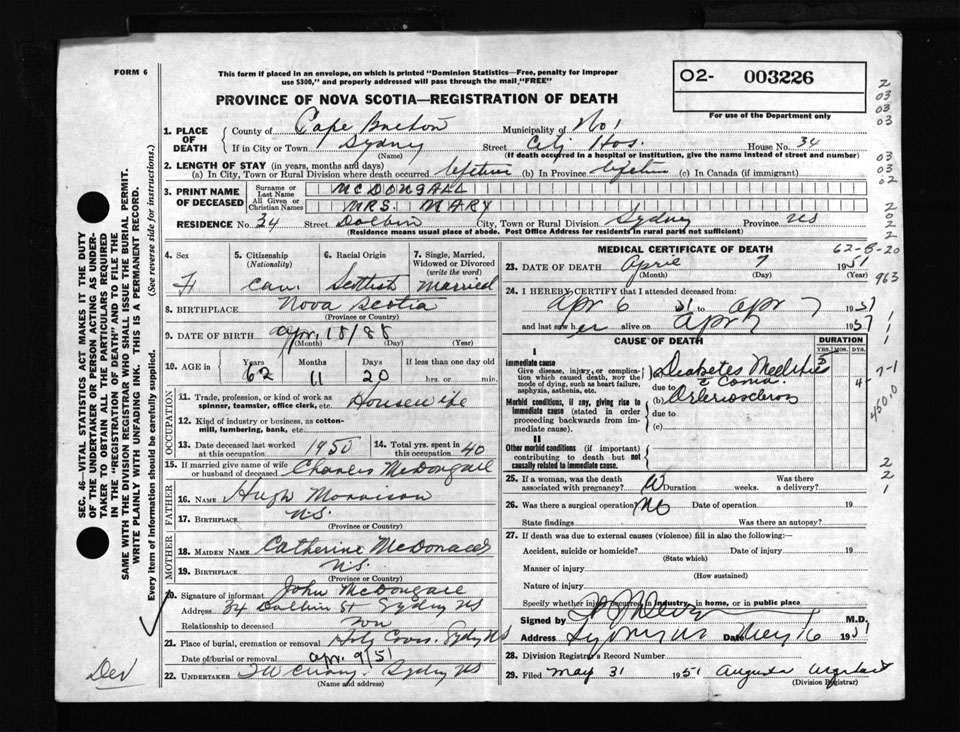 FORM 6
This form if placed in an envelope, on which is printed "Dominion Statistics—Free, penalty for improper
use $300," and properly addressed will pass through the mail "FREE"
O2- 003226
For use of the Department only
PROVINCE OF NOVA SCOTIA—REGISTRATION OF DEATH
1. PLACE OF DEATH County of Cape Breton Municipality of No 1
If in City or Town Sydney (Name) Street City Hos. House No. 34
(If death occurred in a hospital or institution, give the name instead of street and number)
2. LENGTH OF STAY (in years, months and days)
(a) In City, Town or Rural Division where death occurred lifetime (b) In Province lifetime (c) In Canada (if immigrant)
3. PRINT NAME OF DECEASED Surname or Last Name MCDONGALL
All Given or Christian Names MRS. MARY
RESIDENCE No. 34 Street Dolbin City, Town or Rural Division Sydney Province NS
(Residence means usual place of abode. Post Office Address for residents in rural parts not sufficient)
4. Sex 5. Citizenship (Nationality) 6. Racial Origin 7. Single, Married, Widowed or Divorced (write the word)
F Can. Scottish Married
8. BIRTHPLACE Nova Scotia
(Province or Country)
9. DATE OF BIRTH Apr. 18/88
(Month) (Day) (Year)
10. AGE in Years Months Days If less than one day old
62 11 20 hrs. or min.
OCCUPATION
11. Trade, profession, or kind of work as spinner, teamster, office clerk, etc. Housewife
12. Kind of industry or business, as cotton-mill, lumbering, bank, etc.
13. Date deceased last worked at this occupation 1950 14. Total yrs. spent in this occupation 40
15. If married give name of wife or husband of deceased Charles McDongall
FATHER
16. NAME Hugh Morrison
17. BIRTHPLACE N.S.
(Province or Country)
MOTHER
18. MAIDEN NAME Catherine McDonald
19. BIRTHPLACE N.S.
(Province or Country)
20. Signature of informant John McDongall
Address 34 Dolbin St Sydney NS
Relationship to deceased Son
21. Place of burial, cremation or removal Holy Cross. Sydney NS
Date of burial or removal Apr. 9/51
22. UNDERTAKER Sydney NS
(Name and address)
MEDICAL CERTIFICATE OF DEATH
62-8-20
23. DATE OF DEATH April 7 1951
(Month) (Day)
963
24. I HEREBY CERTIFY that I attended deceased from:
Apr 6 51 to Apr 7 1951
and last saw her alive on Apr 7 1951
CAUSE OF DEATH
DURATION
YRS. MOS. DYS.
I
Immediate cause
Give disease, injury, or complication which caused death, NOT the mode of dying, such as heart failure, asphyxia, asthenia, etc.
(a) Diabetes Mellitus 5
due to c coma 4
Morbid conditions, if any, giving rise to immediate cause (stated in order proceeding backwards from immediate cause).
(b) Arteriosclerosis
due to
(c)
II
Other morbid conditions (if important) contributing to death but not causally related to immediate cause.
7-1
450.0
25. If a woman, was the death associated with pregnancy? Duration weeks. Was there a delivery?
26. Was there a surgical operation? No Date of operation 19
State findings Was there an autopsy?
27. If death was due to external causes (violence) fill in also the following:—
Accident, suicide or homicide? Date of injury 19
(State which)
Manner of injury
(How sustained)
Nature of injury
Specify whether injury occurred in industry, in home, or in public place
Signed by M.D.
Address Sydney NS Date May 16 1951
28. Division Registrar's Record Number
29. Filed May 31 1951 Augusta Urquhart
(Division Registrar)
SEC. 46—VITAL STATISTICS ACT MAKES IT THE DUTY
OF THE UNDERTAKER OR PERSON ACTING AS UNDER-
TAKER TO OBTAIN ALL THE PARTICULARS REQUIRED
IN THE "REGISTRATION OF DEATH" AND TO FILE THE
SAME WITH THE DIVISION REGISTRAR WHO SHALL ISSUE THE BURIAL PERMIT.
WRITE PLAINLY WITH UNFADING INK. THIS IS A PERMANENT RECORD.
Every item of information should be carefully supplied. (See reverse side for instructions.)
2
03
03
03
03
03
02
2
0
2
2
2
1
1
2
2
1
Dev